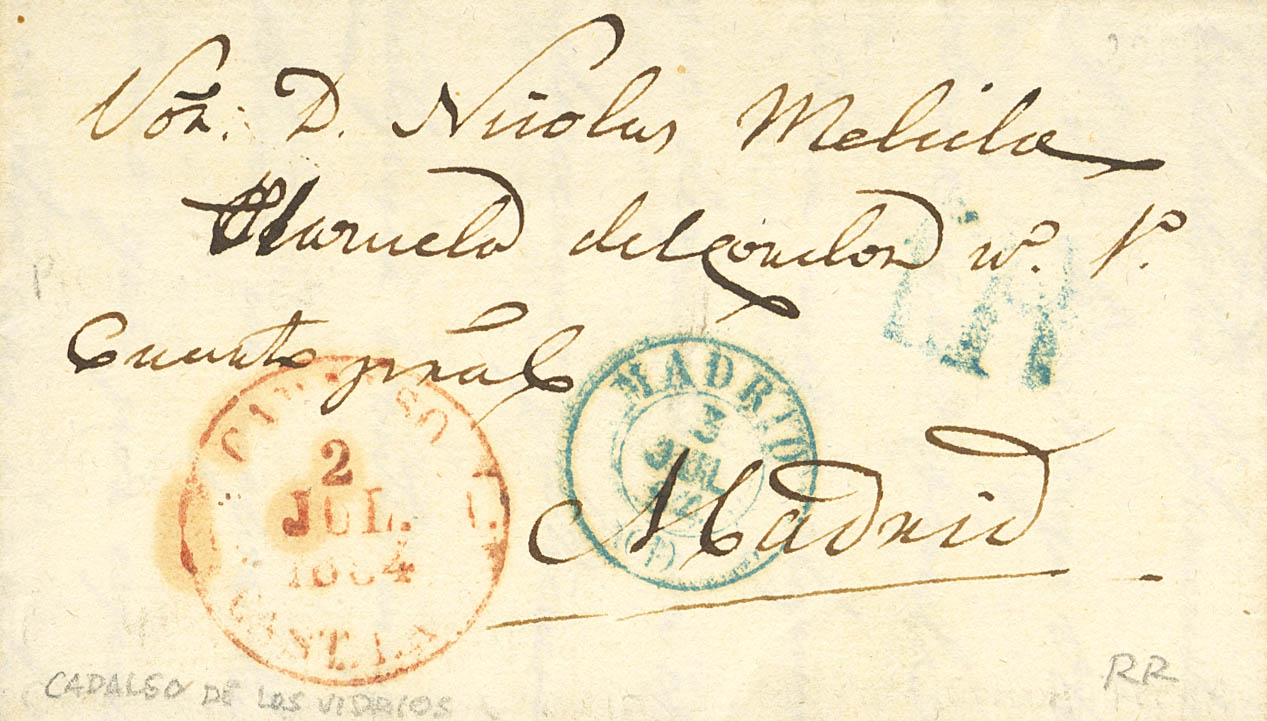 Sor. D. Nicolas Melida
Plazuela del Cordon nº. 1º.
Cuarto pral
Madrid
2
JUL.
CAST. LA N.
MADRID
3
JUL
CADALSO DE LOS VIDRIOS
RR